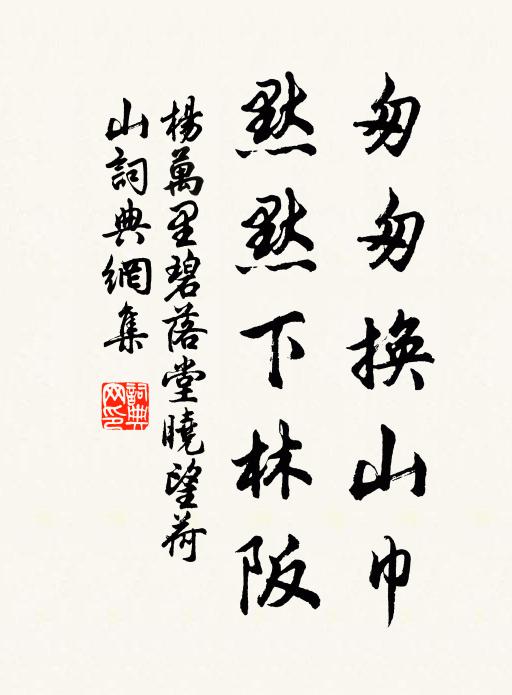 匆匆換山巾
默默下林阪
楊萬里碧落堂曉望荷
山詞典網集
詞典網印